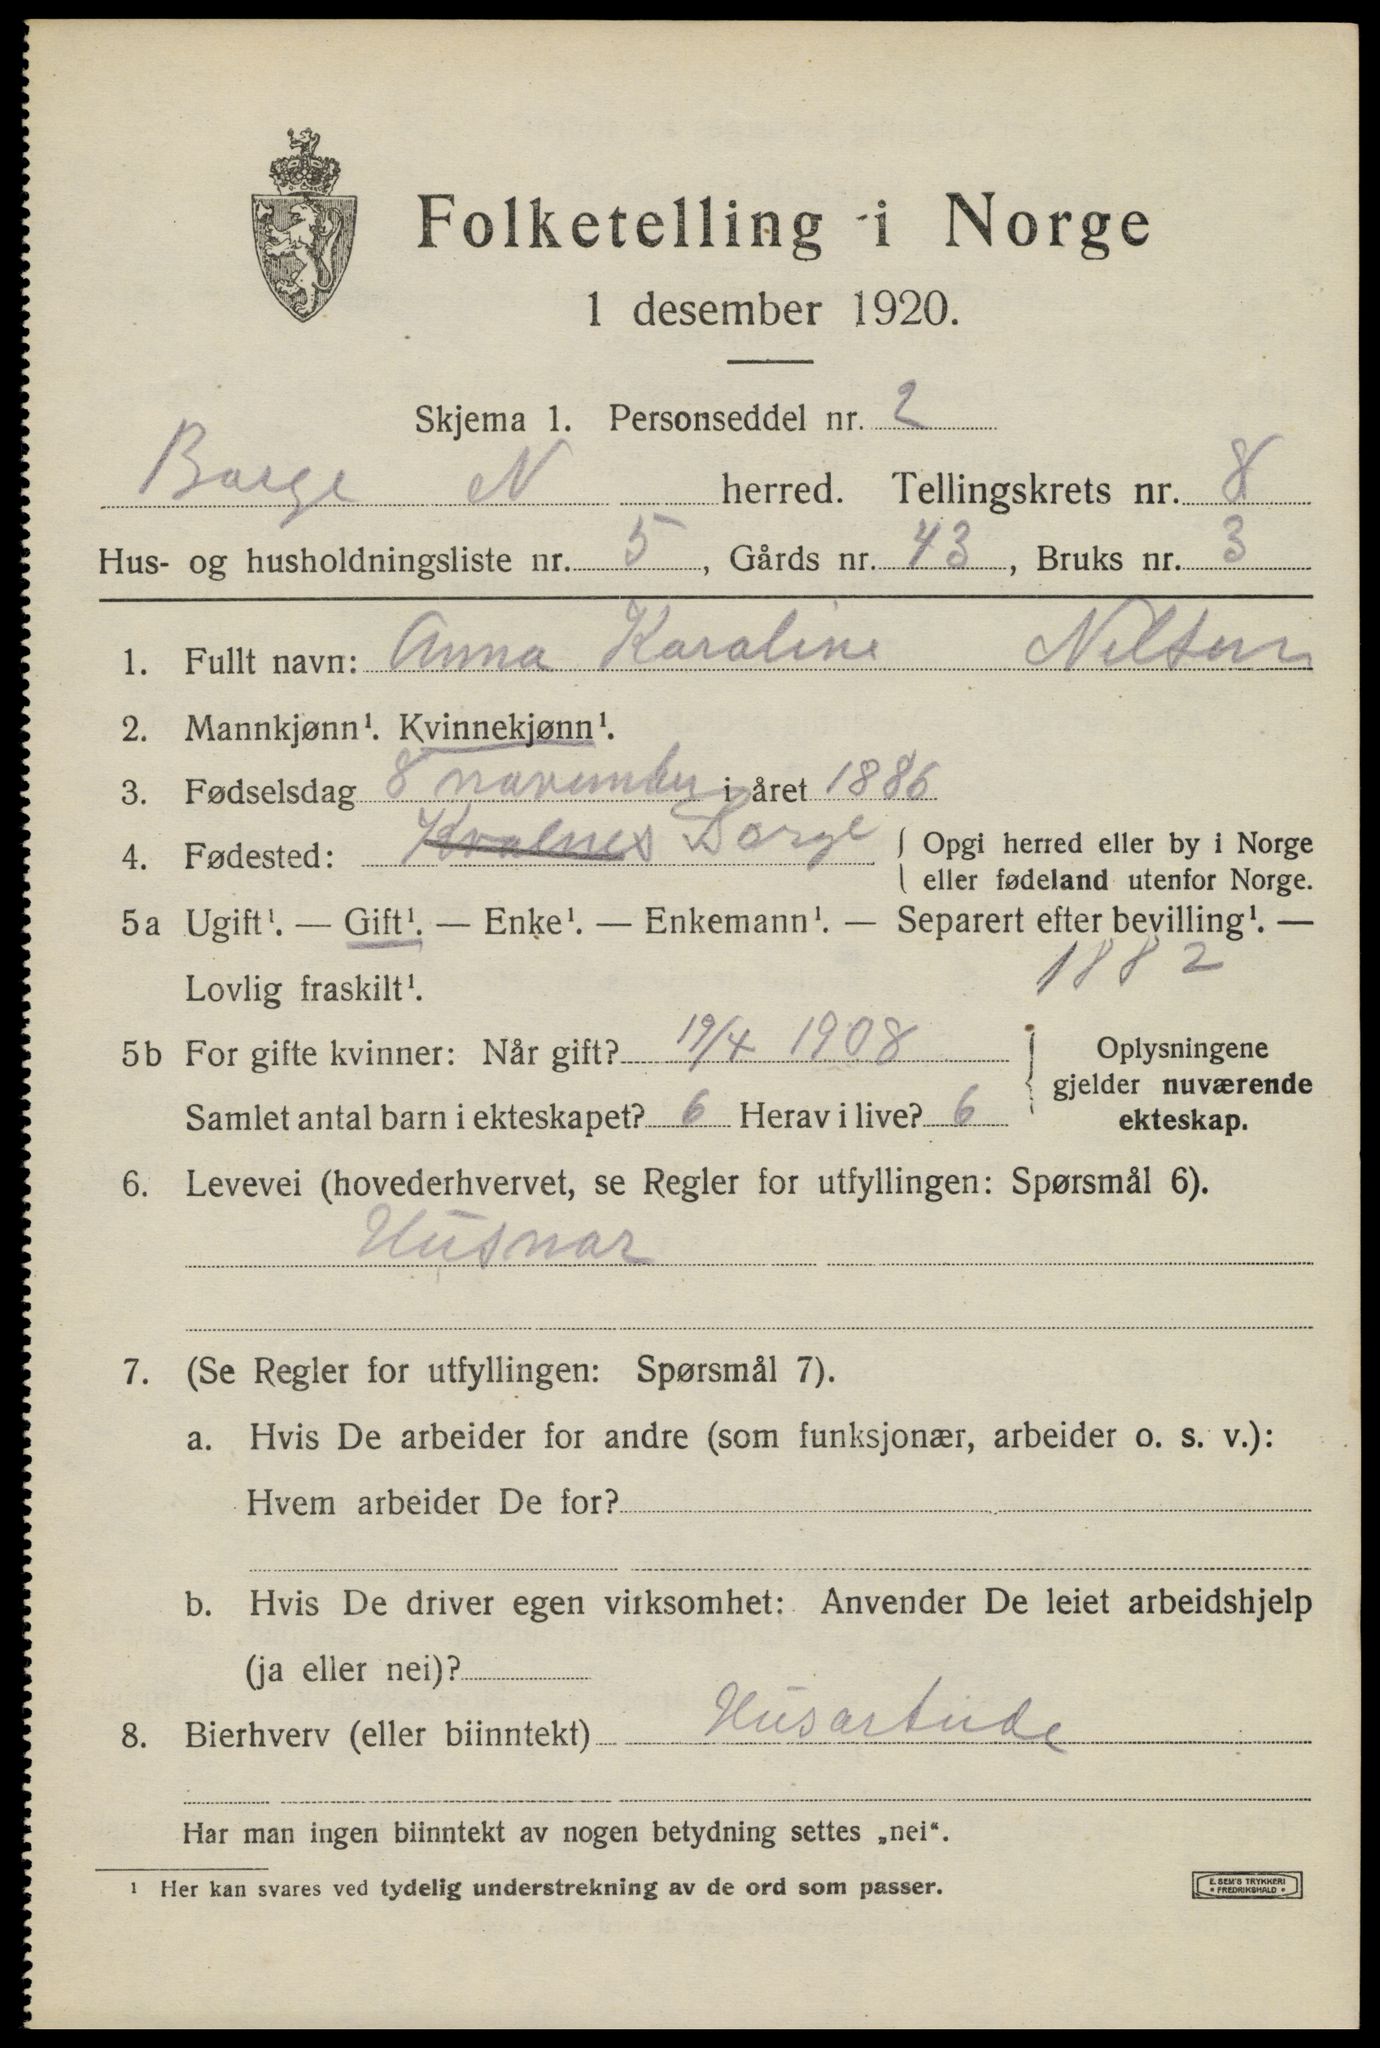 Folketelling i Norge
1 desember 1920.
Skjema 1. Personseddel nr. 2
Borge N herred. Tellingskrets nr. 8
Hus- og husholdningsliste nr. 5, Gårds nr. 43, Bruks nr. 3
1. Fullt navn: Anna Karoline Nilsen
2. Mannkjønn¹. Kvinnekjønn¹.
3. Fødselsdag 8 november i året 1886
4. Fødested: Kvalnes Borge { Opgi herred eller by i Norge
eller fødeland utenfor Norge.
5a Ugift¹. — Gift¹. — Enke¹. — Enkemann¹. — Separert efter bevilling¹. —
Lovlig fraskilt¹. 1882
5b For gifte kvinner: Når gift? 19/4 1908
Samlet antal barn i ekteskapet? 6 Herav i live? 6
Oplysningene
gjelder nuværende
ekteskap.
6. Levevei (hovederhvervet, se Regler for utfyllingen: Spørsmål 6).
Husmor
7. (Se Regler for utfyllingen: Spørsmål 7).
a. Hvis De arbeider for andre (som funksjonær, arbeider o. s. v.):
Hvem arbeider De for?
b. Hvis De driver egen virksomhet: Anvender De leiet arbeidshjelp
(ja eller nei)?
8. Bierhverv (eller biinntekt) Husarbeide
Har man ingen biinntekt av nogen betydning settes „nei".
¹ Her kan svares ved tydelig understrekning av de ord som passer.
E. SEM'S TRYKKERI
• FREDRIKSHALD •